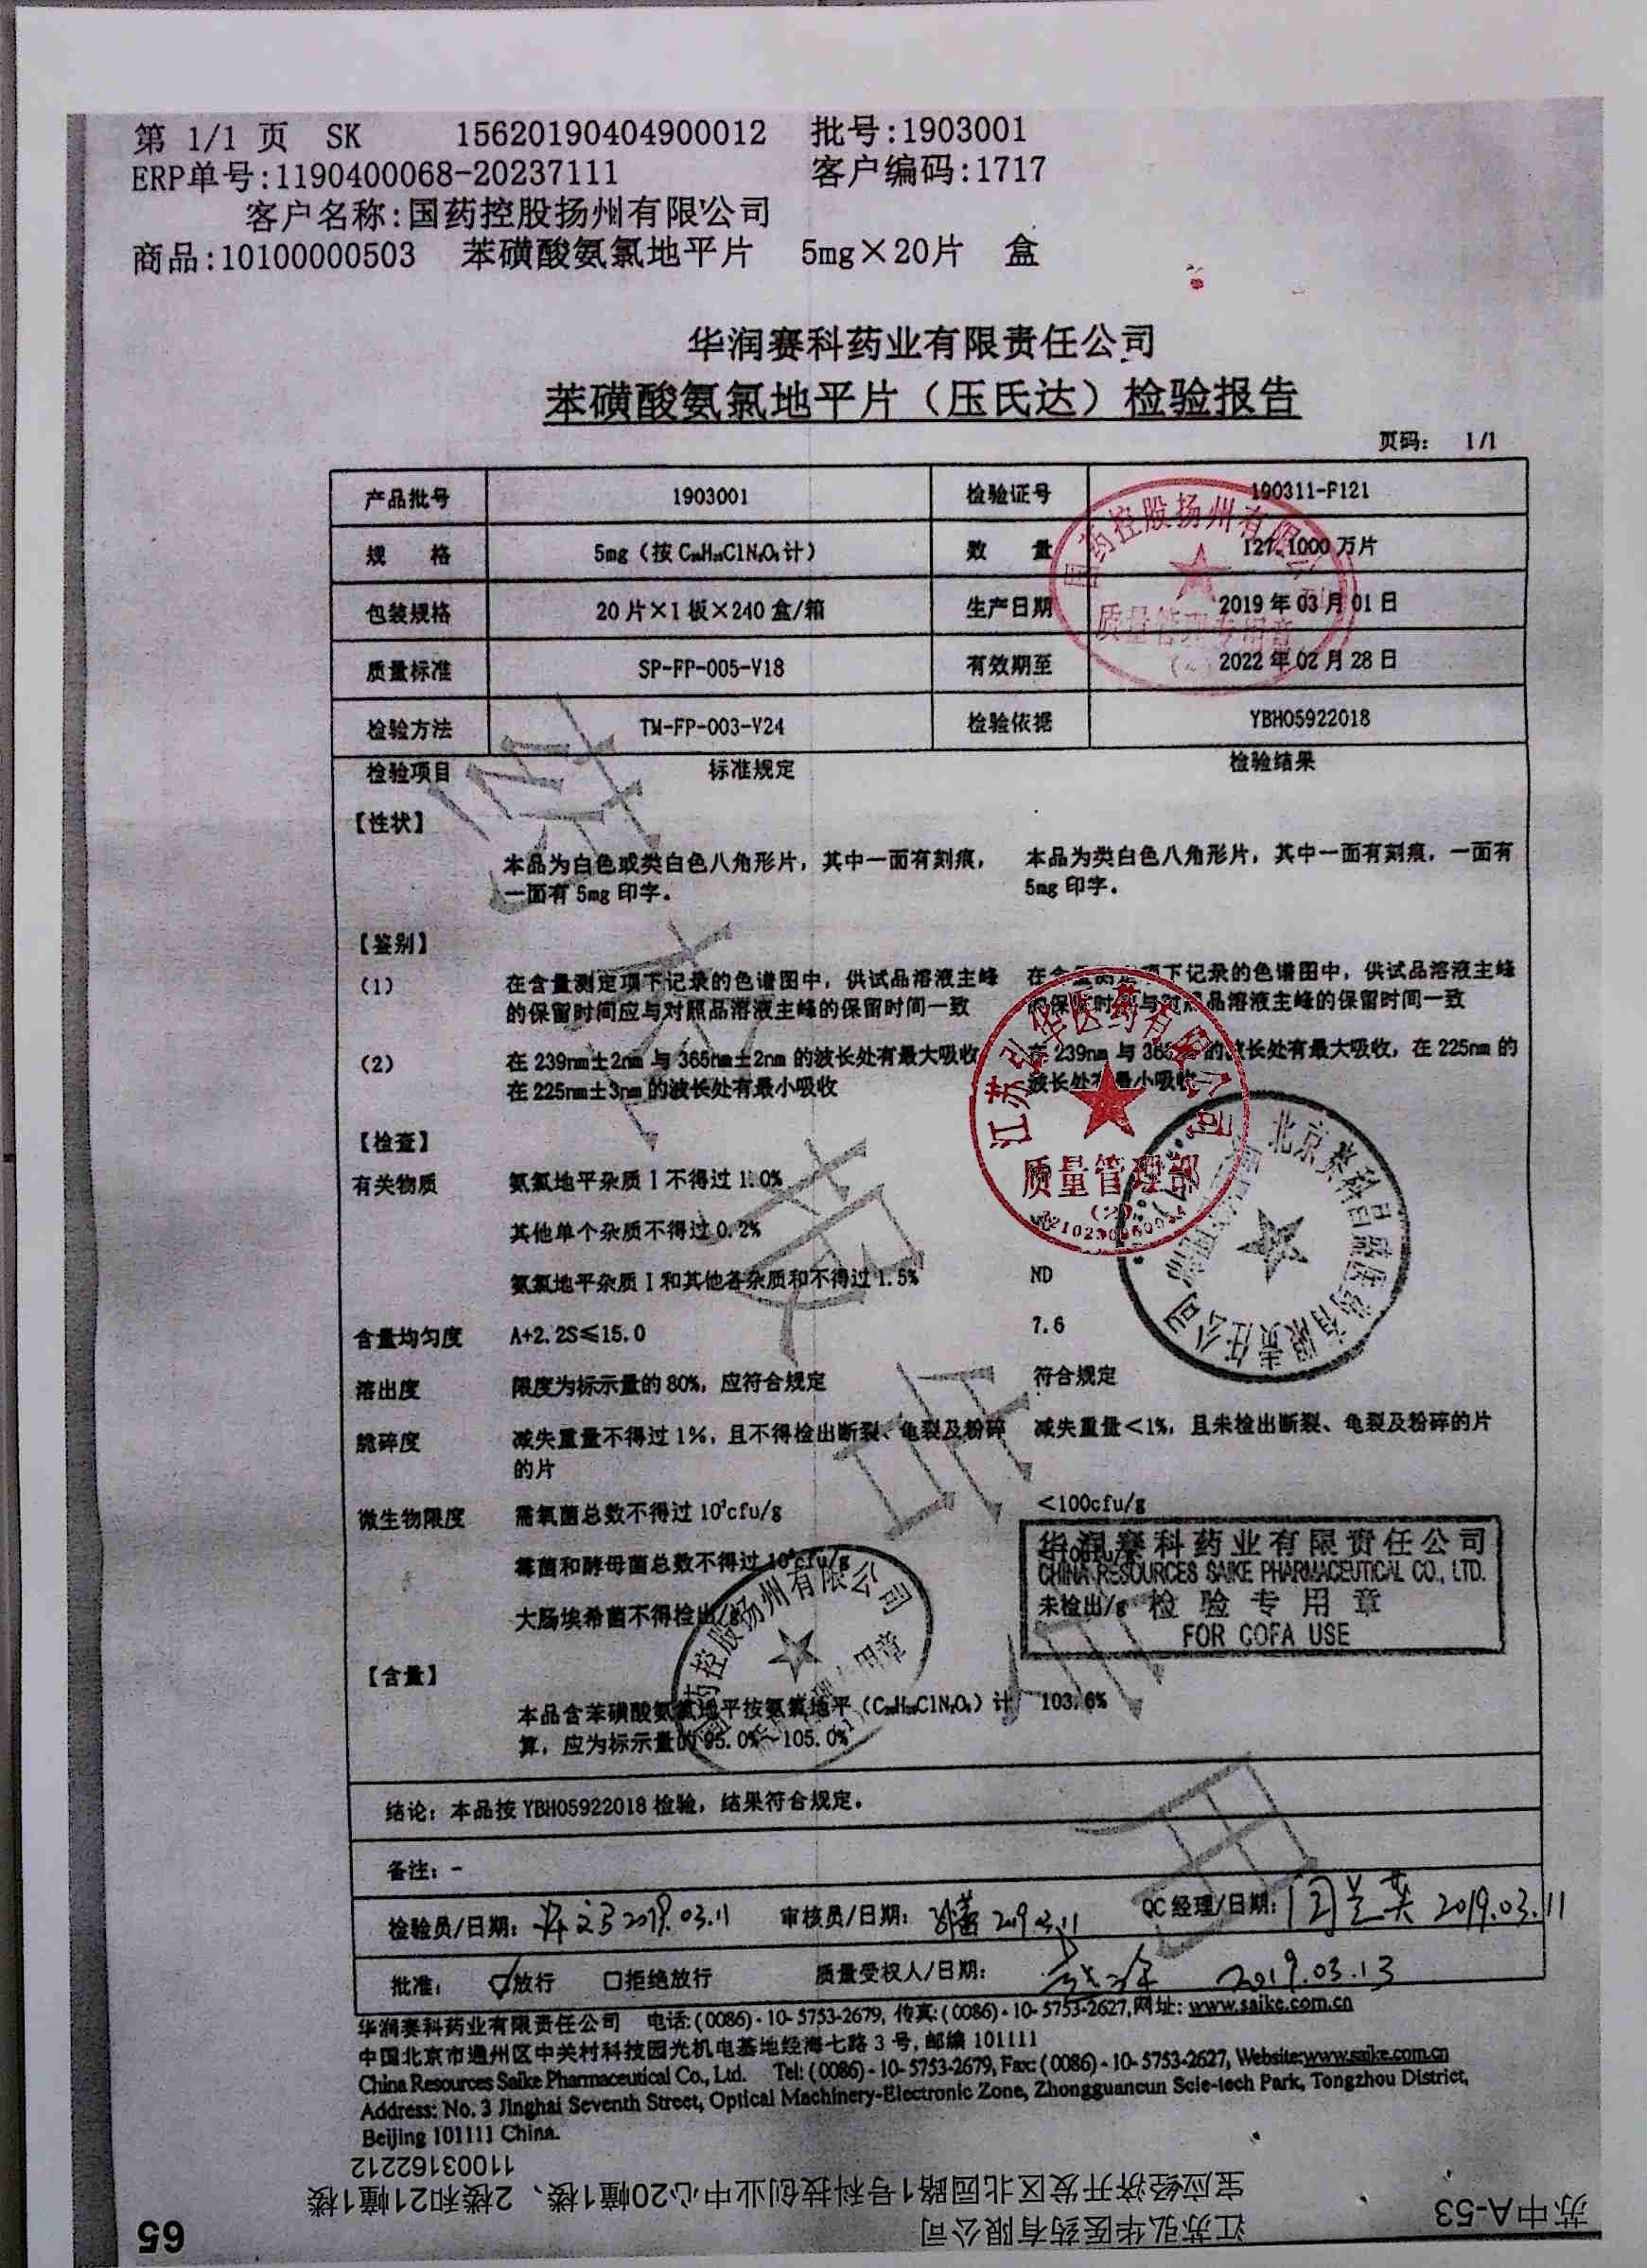 第 1/1 页 SK 15620190404900012 批号:1903001
ERP单号:1190400068-20237111 客户编码:1717
客户名称:国药控股扬州有限公司
商品:10100000503 苯磺酸氨氯地平片 5mg×20片 盒
华润赛科药业有限责任公司
苯磺酸氨氯地平片（压氏达）检验报告
页码： 1/1
产品批号 1903001 检验证号 190311-F121
规 格 5mg（按C₂₀H₂₅ClN₂O₅计） 数 量 127.1000万片
包装规格 20片×1板×240盒/箱 生产日期 2019年03月01日
质量标准 SP-FP-005-V18 有效期至 2022年02月28日
检验方法 TM-FP-003-V24 检验依据 YBH05922018
检验项目 标准规定 检验结果
【性状】
本品为白色或类白色八角形片，其中一面有刻痕， 本品为类白色八角形片，其中一面有刻痕，一面有
一面有5mg印字。 5mg印字。
【鉴别】
（1） 在含量测定项下记录的色谱图中，供试品溶液主峰 在含量测定项下记录的色谱图中，供试品溶液主峰
的保留时间应与对照品溶液主峰的保留时间一致 的保留时间与对照品溶液主峰的保留时间一致
（2） 在239nm±2nm与365nm±2nm的波长处有最大吸收 在239nm与365nm的波长处有最大吸收，在225nm的
在225nm±3nm的波长处有最小吸收 波长处有最小吸收
【检查】
有关物质 氨氯地平杂质Ⅰ不得过1.0%
其他单个杂质不得过0.2%
氨氯地平杂质Ⅰ和其他各杂质和不得过1.5% ND
含量均匀度 A+2.2S≤15.0 7.6
溶出度 限度为标示量的80%，应符合规定 符合规定
脆碎度 减失重量不得过1%，且不得检出断裂、龟裂及粉碎 减失重量<1%，且未检出断裂、龟裂及粉碎的片
的片
微生物限度 需氧菌总数不得过10³cfu/g <100cfu/g
霉菌和酵母菌总数不得过10²cfu/g
大肠埃希菌不得检出/g 未检出/g
【含量】
本品含苯磺酸氨氯地平按氨氯地平（C₂₀H₂₅ClN₂O₅）计 103.6%
算，应为标示量的95.0%～105.0%
结论：本品按YBH05922018检验，结果符合规定。
备注：-
检验员/日期： 2019.03.11 审核员/日期： 2019.03.11 QC经理/日期：闫兰英 2019.03.11
批准： 放行 □拒绝放行 质量受权人/日期： 2019.03.13
华润赛科药业有限责任公司 电话:(0086)-10-5753-2679, 传真:(0086)-10-5753-2627,网址: www.saike.com.cn
中国北京市通州区中关村科技园光机电基地经海七路3号,邮编101111
China Resources Saike Pharmaceutical Co., Ltd. Tel: (0086)-10-5753-2679, Fax: (0086)-10-5753-2627, Website:www.saike.com.cn
Address: No. 3 Jinghai Seventh Street, Optical Machinery-Electronic Zone, Zhongguancun Scie-tech Park, Tongzhou District,
Beijing 101111 China.
国药控股扬州有限公司
质量管理专用章
江苏弘华医药有限公司
质量管理部
(2)
北京赛科昌盛医药有限责任公司
华润赛科药业有限责任公司
CHINA RESOURCES SAIKE PHARMACEUTICAL CO., LTD.
检验专用章
FOR COFA USE
国药控股扬州有限公司
11003162212
宝应经济开发区北园路1号科技创业中心20幢1楼、2楼和21幢1楼
江苏弘华医药有限公司
苏中A-53
65